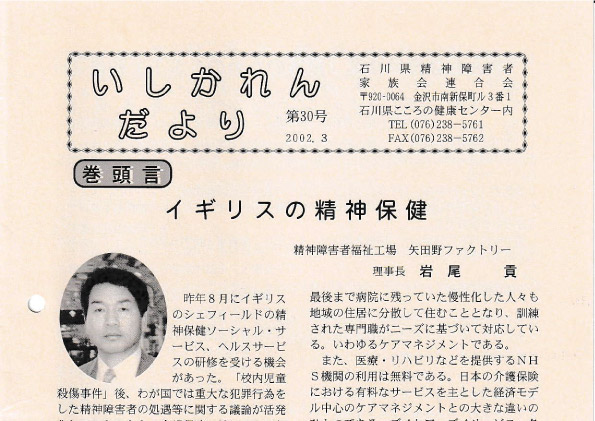 いしかれん
だより
第30号
2002.3
石川県精神障害者
家族会連合会
〒920-0064 金沢市南新保町ル3番1
石川県こころの健康センター内
TEL(076)238-5761
FAX(076)238-5762
巻頭言
イギリスの精神保健
精神障害者福祉工場 矢田野ファクトリー
理事長 岩尾 貢
昨年8月にイギリス
のシェフィールドの精
神保健ソーシャル・サ
ービス、ヘルスサービ
スの研修を受ける機会
があった。「校内児童
殺傷事件」後、わが国では重大な犯罪行為を
した精神障害者の処遇等に関する議論が活発
最後まで病院に残っていた慢性化した人々も
地域の住居に分散して住むこととなり、訓練
された専門職がニーズに基づいて対応してい
る。いわゆるケアマネジメントである。
また、医療・リハビリなどを提供するNH
S機関の利用は無料である。日本の介護保険
における有料なサービスを主とした経済モデ
ル中心のケアマネジメントとの大きな違いの